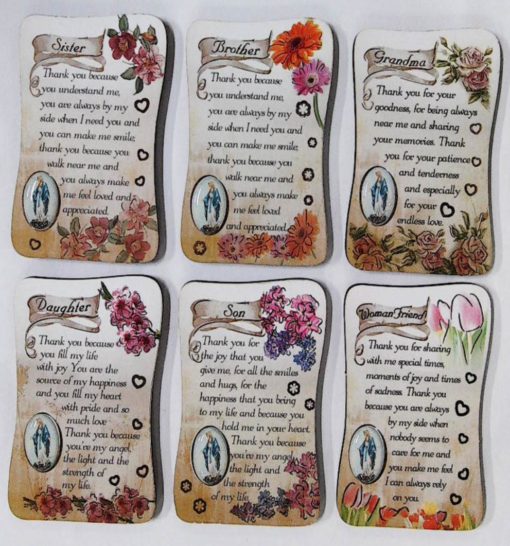 Sister
Thank you because
you understand me,
you are always by my
side when I need you and
you can make me smile,
thank you because you
walk near me and
you always make
me feel loved and
appreciated.
Brother
Thank you because
you understand me,
you are always by my
side when I need you and
you can make me smile,
thank you because you
walk near me and
you always make
me feel loved
and appreciated.
Grandma
Thank you for your
goodness, for being always
near me and sharing
your memories. Thank
you for your patience
and tenderness
and especially
for your
endless love.
Daughter
Thank you because
you fill my life
with joy. You are the
source of my happiness
and you fill my heart
with pride and so
much love.
Thank you because
you're my angel,
the light and the
strength of
my life.
Son
Thank you for
the joy that you
give me, for all the smiles
and hugs, for the
happiness that you bring
to my life and because you
hold me in your heart.
Thank you because
you're my angel,
the light and
the strength
of my life.
Woman Friend
Thank you for sharing
with me special times,
moments of joy and times
of sadness. Thank you
because you are always
by my side when
nobody seems to
care for me and
you make me feel
I can always rely
on you.